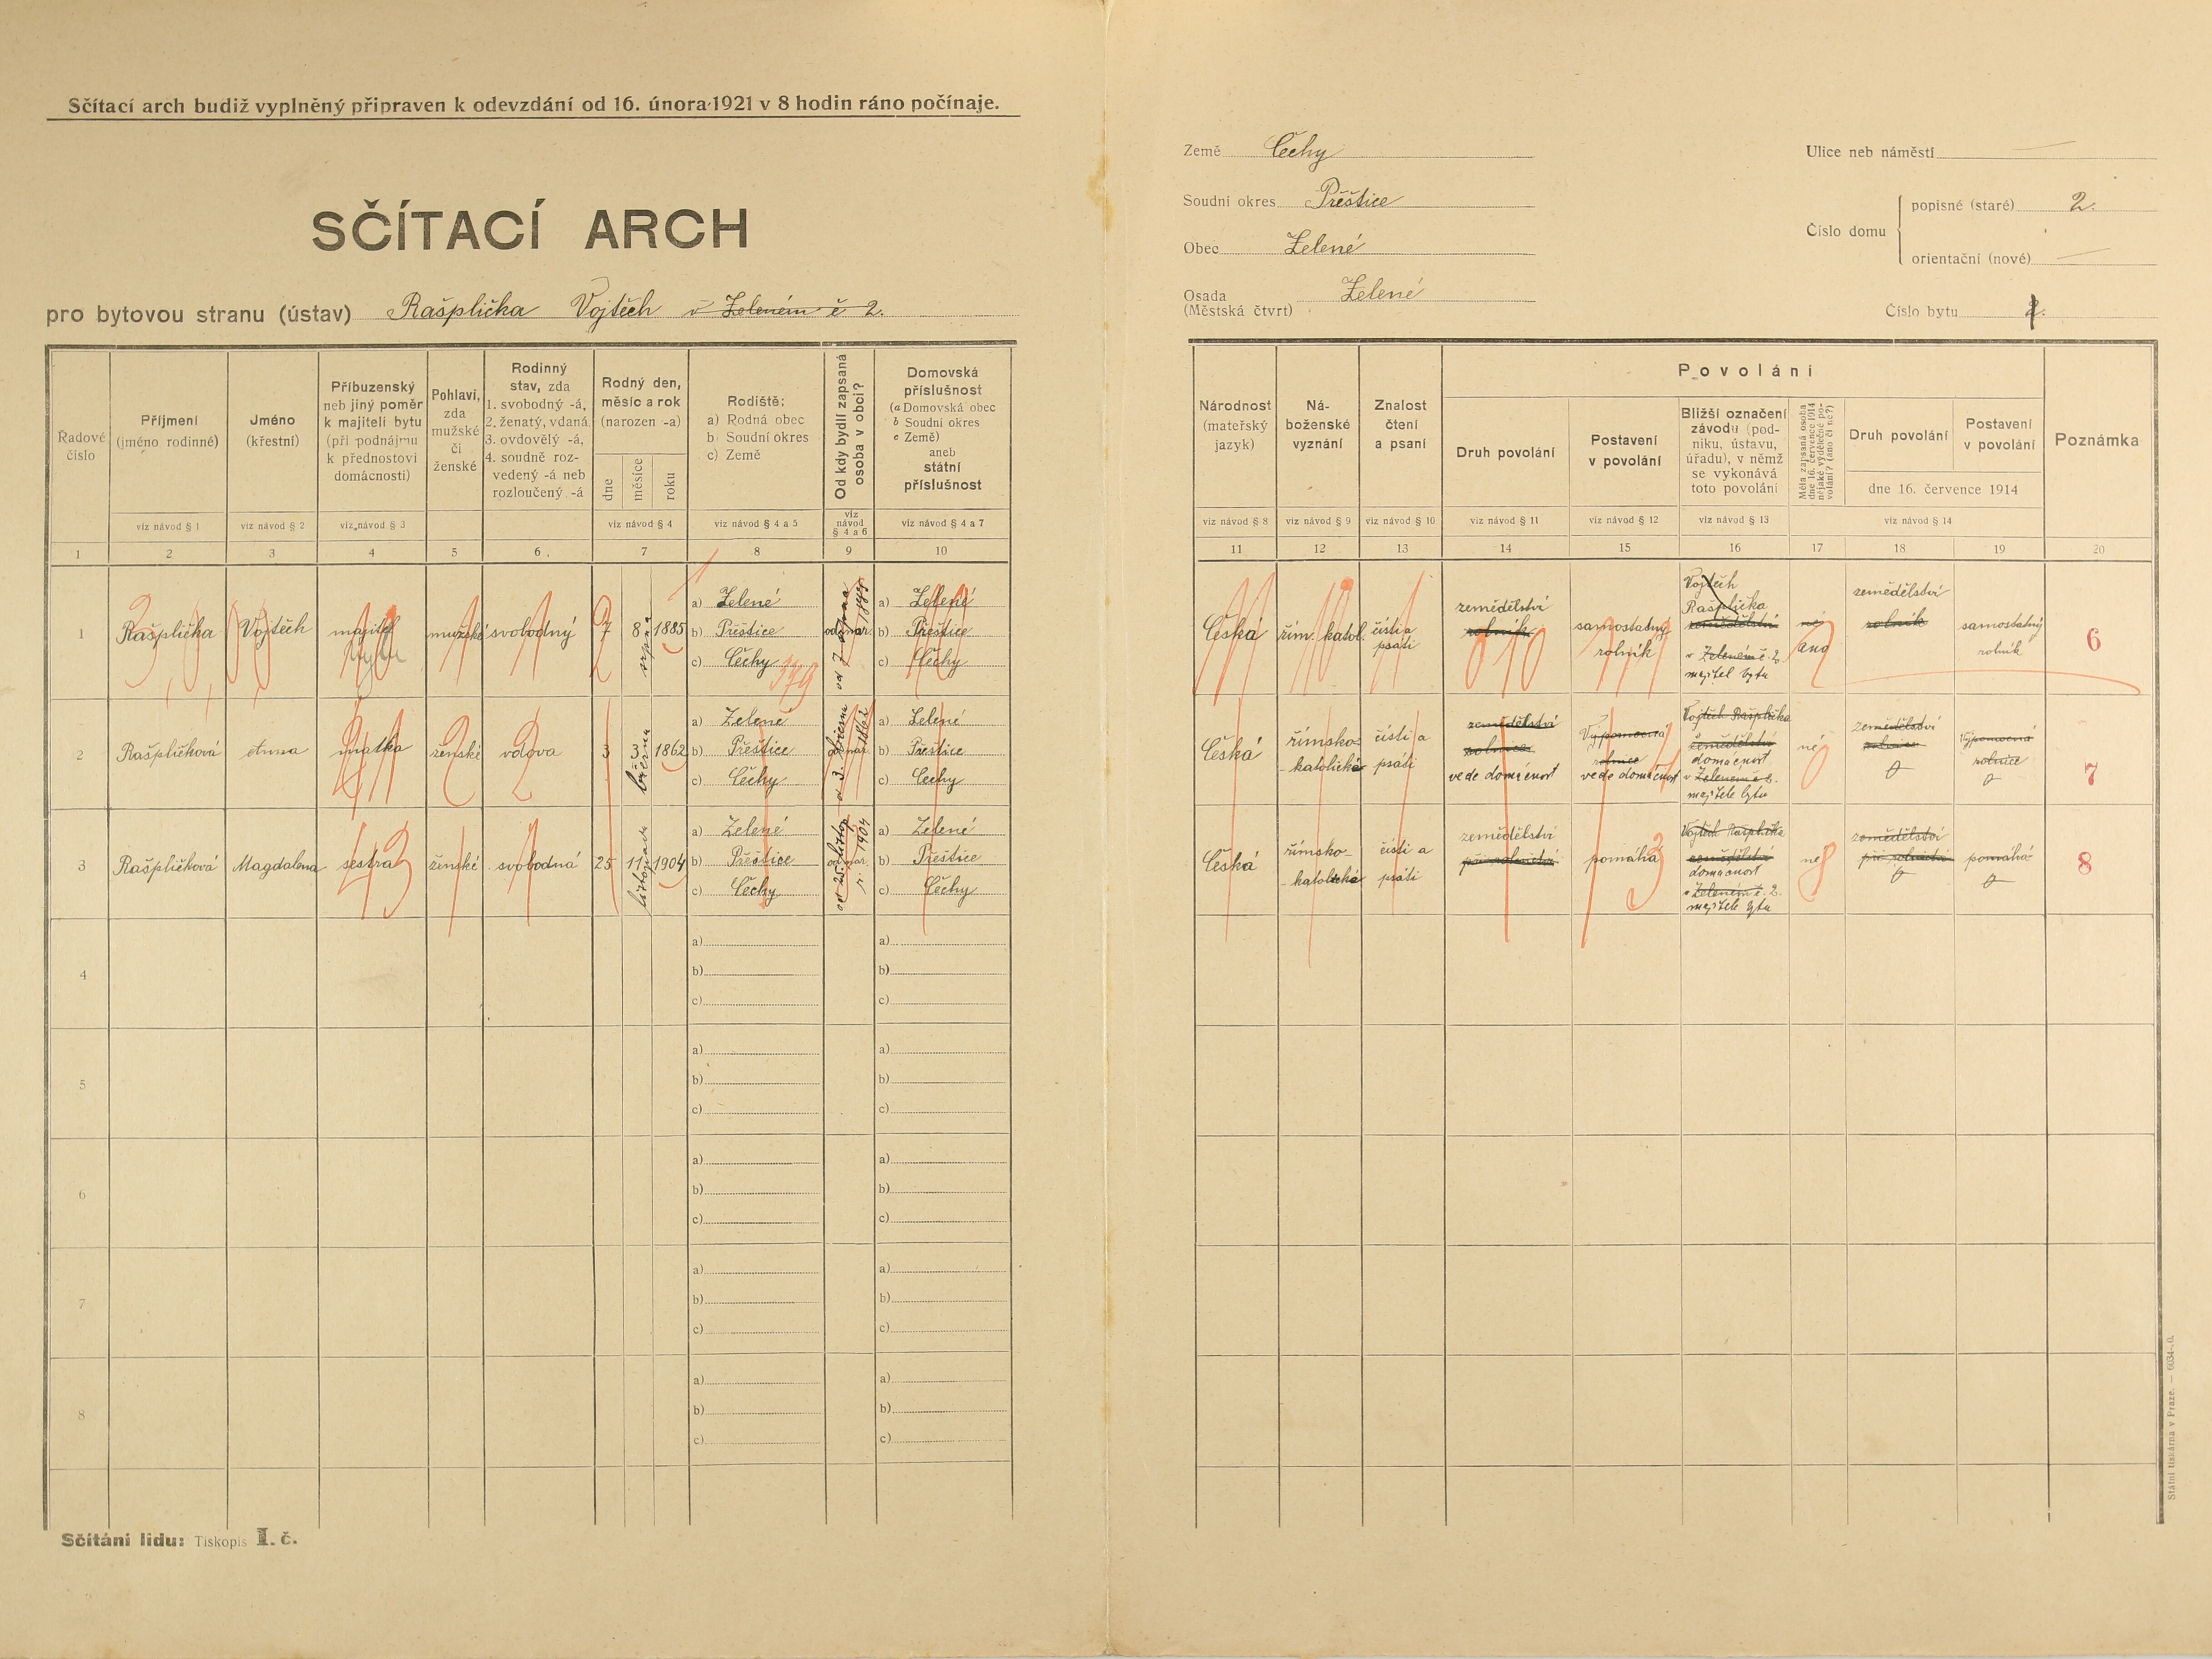 Sčítací arch budiž vyplněný připraven k odevzdání od 16. února 1921 v 8 hodin ráno počínaje.
SČÍTACÍ ARCH
pro bytovou stranu (ústav) Rašplička Vojtěch v Zeleném č 2.
Země Čechy
Soudní okres Přeštice
Obec Zelené
Osada (Městská čtvrt) Zelené
Ulice neb náměstí
Číslo domu
popisné (staré) 2.
orientační (nové) —
Číslo bytu
Řadové číslo
Příjmení (jméno rodinné)
Jméno (křestní)
Příbuzenský neb jiný poměr k majiteli bytu (při podnájmu k přednostovi domácnosti)
Pohlaví, zda mužské či ženské
Rodinný stav, zda 1. svobodný -á, 2. ženatý, vdaná 3. ovdovělý -á, 4. soudně rozvedený -á neb rozloučený -á
Rodný den, měsíc a rok (narozen -a)
dne měsíce roku
Rodiště: a) Rodná obec b) Soudní okres c) Země
Od kdy bydlí zapsaná osoba v obci?
Domovská příslušnost (a Domovská obec b Soudní okres c Země) aneb státní příslušnost
Národnost (mateřský jazyk)
Náboženské vyznání
Znalost čtení a psaní
Povolání
Druh povolání
Postavení v povolání
Bližší označení závodu (podniku, ústavu, úřadu), v němž se vykonává toto povolání
Měla zapsaná osoba dne 16. července 1914 nějaké výdělečné povolání? (ano či ne?)
Druh povolání
Postavení v povolání
dne 16. července 1914
Poznámka
viz návod § 1 viz návod § 2 viz návod § 3 viz návod § 4 viz návod § 4 a 5 viz návod § 4 a 6 viz návod § 4 a 7
viz návod § 8 viz návod § 9 viz návod § 10 viz návod § 11 viz návod § 12 viz návod § 13 viz návod § 14
1 2 3 4 5 6 7 8 9 10
11 12 13 14 15 16 17 18 19 20
1 Rašplička Vojtěch majitel bytu mužské svobodný 7 8 srpna 1885
a) Zelené
b) Přeštice
c) Čechy
179
a) Zelené
b) Přeštice
c) Čechy
Česká řím. katol. čísti a psáti
zemědělství
rolník
samostatný rolník
Vojtěch Rašplička
zemědělství
v Zeleném č. 2
majitel bytu
né
ano
zemědělství
rolník
samostatný rolník
6
2 Rašpličková Anna matka ženské vdova 3 3 března 1862
a) Zelené
b) Přeštice
c) Čechy
a) Zelené
b) Přeštice
c) Čechy
Česká římsko-katolická čísti a psáti
zemědělství
rolnice
vede domácnost
Výpomocná
rolnice
vede domácnost
Vojtěch Rašplička
zemědělství
domácnost
v Zeleném č 2.
majitele bytu
né
zemědělství
rolnice
Výpomocná
rolnice
7
3 Rašpličková Magdalena sestra ženské svobodná 25 11 listopadu 1904
a) Zelené
b) Přeštice
c) Čechy
a) Zelené
b) Přeštice
c) Čechy
Česká římsko-katolická čísti a psáti
zemědělství
při rolnictví
pomáhá
Vojtěch Rašplička
zemědělství
domácnost
v Zeleném č. 2.
majitele bytu
né
zemědělství
při rolnictví
pomáhá
8
4 a) b) c) a) b) c)
5 a) b) c) a) b) c)
6 a) b) c) a) b) c)
7 a) b) c) a) b) c)
8 a) b) c) a) b) c)
Sčítání lidu: Tiskopis I. č.
Státní tiskárna v Praze. — 6034-20.